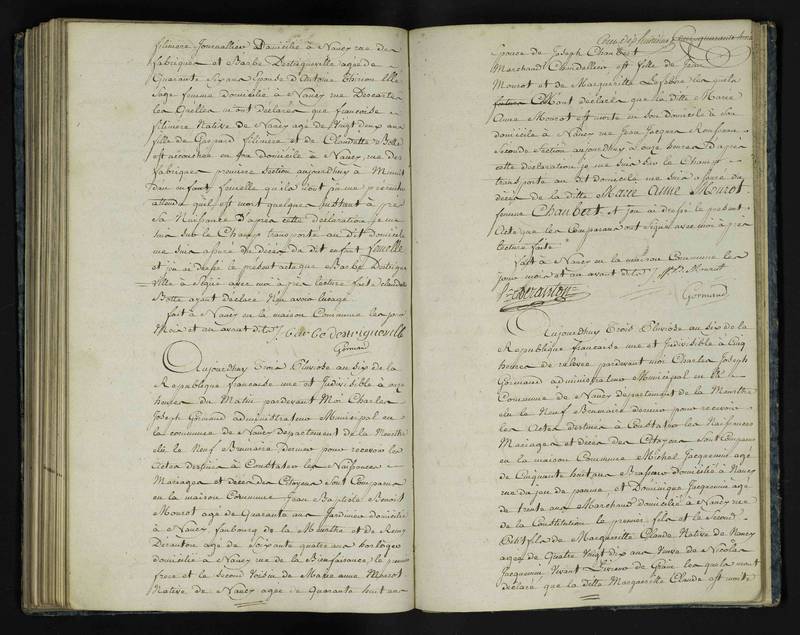 filiniere Journallier Domicilié à Nancy rue des
fabriques et Barbe Destriqueville agée de
Quarante Six ans Epouse d'Antoine thirion Elle
Sage femme domiciliée à Nancy rue Descartes
les quelles m'ont déclarés que françoise
filiniere Native de Nancy agé de Vingt deux ans
fille de Gaspard filiniere et de Claudette Botte
est accouchée en son Domicile à Nancy rue des
fabriques premiere Section aujourdhuy à Minuit
d'un enfant femelle qu'ils n'ont pu me présenter
attendu qu'il est mort quelques instant après
Sa Naissance D'après cette déclaration je me
suis sur le Champ transporté au dit domicile
me suis assuré du Décès du dit enfant femelle
et j'ai dressé le présent acte que Barbe Destrique
ville à Signé avec moi après lecture faite Claudette
Botte ayant déclaré n'en avoir l'usage
fait à Nancy en la maison Commune les jour
Mois et an avant dits
Gormand
Aujourdhuy Trois Pluviose an six de la
Republique francaise une et Indivisible à onze
heures du Matin pardevant Moi Charles
Joseph Gormand administrateur Municipal en
la commune de Nancy departement de la Meurthe
élu le Neuf Brumaire dernier pour recevoir les
Actes destinés à Constater les Naissances
Mariages et décès des Citoyens Sont Comparus
en la maison Commune Jean Baptiste Benoit
Mourot agé de Quarante ans Jardinier domicilié
à Nancy faubourg de la Meurthe et de Remy
Deranton agé de Soixante quatre ans horloger
domicilié à Nancy rue de la Bienfaisance le premier
frere et le Second Voisin de Marie anne Mourot
Native de Nancy agée de Quarante huit ans
Epouse de Joseph Chaubert
Marchand Chandellier est fille de Jean
Mourot et de Marguerite Lefebvre les quels
m'ont déclarés que la ditte Marie
Anne Mourot est morte en son domicile à son
domicile à Nancy rue Jean Jacques Rousseau
Seconde Section aujourdhuy à onze heures D'après
cette déclaration je me suis sur le Champ
transporté au dit domicile me suis assuré du
décès de la ditte Marie Anne Mourot
femme Chaubert et j'ai dressé le présent
Acte que les Comparans ont signé avec moi après
lecture faite
fait à Nancy en la maison Commune les
jour mois et an avant dits J. Bt. B. Mourot
Gormand
Aujourdhuy Trois Pluviose an six de la
Republique francaise une et Indivisible à Cinq
heures de relevée pardevant moi Charles Joseph
Gormand administrateur Municipal en la
Commune de Nancy departement de la Meurthe
élu le Neuf Brumaire dernier pour recevoir
les Actes destinés à Constater les Naissances
Mariages et décès des Citoyens Sont Comparus
en la maison Commune Michel Jacquemin agé
de Cinquante huit ans Brasseur domicilié à Nancy
rue du jeu de paume, et Dominique Jacquemin agé
de trente ans Marchand domicilié à Nancy rue
de la Constitution le premier fils et le Second
Petit fils de Marguerite Claude Native de Nancy
agée de Quatre Vingt dix ans Veuve de Nicolas
Jacquemin Vivant les quels m'ont
déclaré que la ditte Marguerite Claude est morte